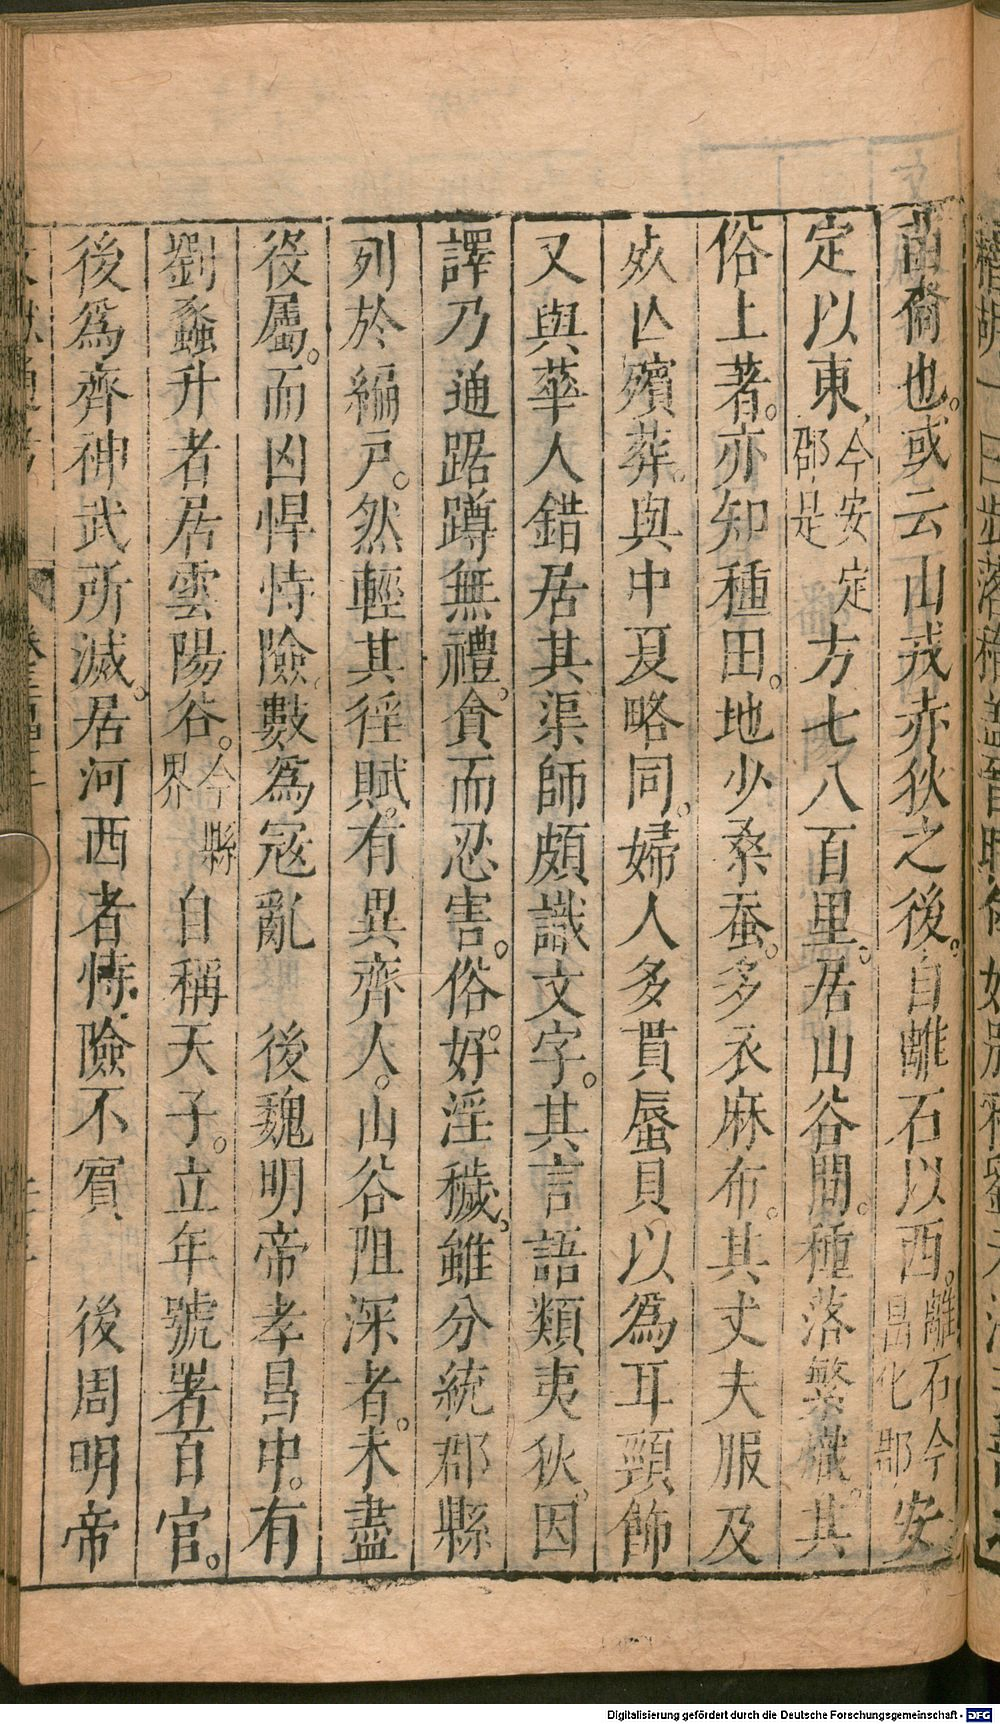 苗裔也。或云山戎赤狄之後。自離石以西。離石今昌化郡安
定以東，今安定郡是方七八百里。居山谷間。種落繁熾。其
俗土著。亦知種田。地少桑蚕。多衣麻布。其丈夫服及
死亾殯葬。與中夏略同。婦人多貫蜃貝以爲耳頸飾
又與華人錯居其渠師頗識文字。其言語類夷狄。因
譯乃通踞蹲無禮。貪而忍害。俗好淫穢。雖分統郡縣
列於編戶。然輕其徭賦。有異齊人。山谷阻深者。未盡
役屬。而凶悍恃險數爲寇亂　後魏明帝孝昌中。有
劉蠡升者居雲陽谷。今縣界自稱天子。立年號署百官。
後爲齊神武所滅。居河西者恃險不賓　後周明帝
Digitalisierung gefördert durch die Deutsche Forschungsgemeinschaft - DFG